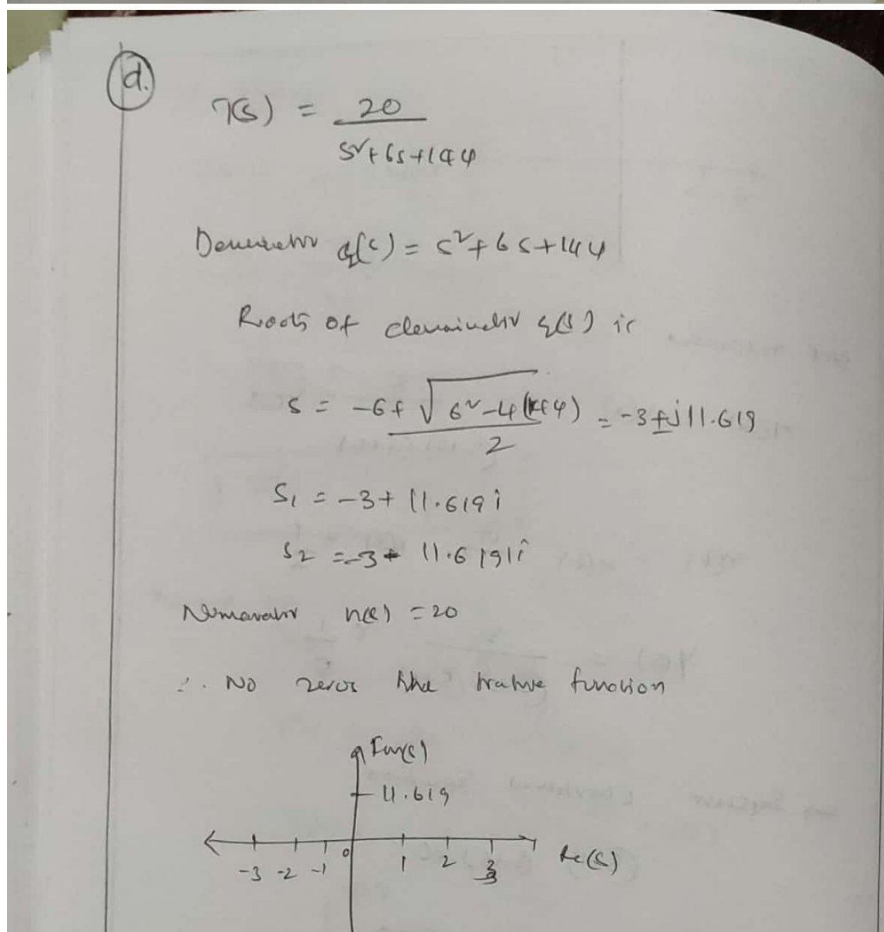 d.
T(s) = 20 / s²+6s+144
Denominator q(s) = s²+6s+144
Roots of denominator q(s) is
s = -6± √6²-4(144) / 2 = -3±j11.619
S₁ = -3+11.619i
S₂ = -3- 11.6191i
Numerator n(s) = 20
∴ No zeros the function
Im(s)
11.619
-3 -2 -1 0 1 2 3 Re(s)